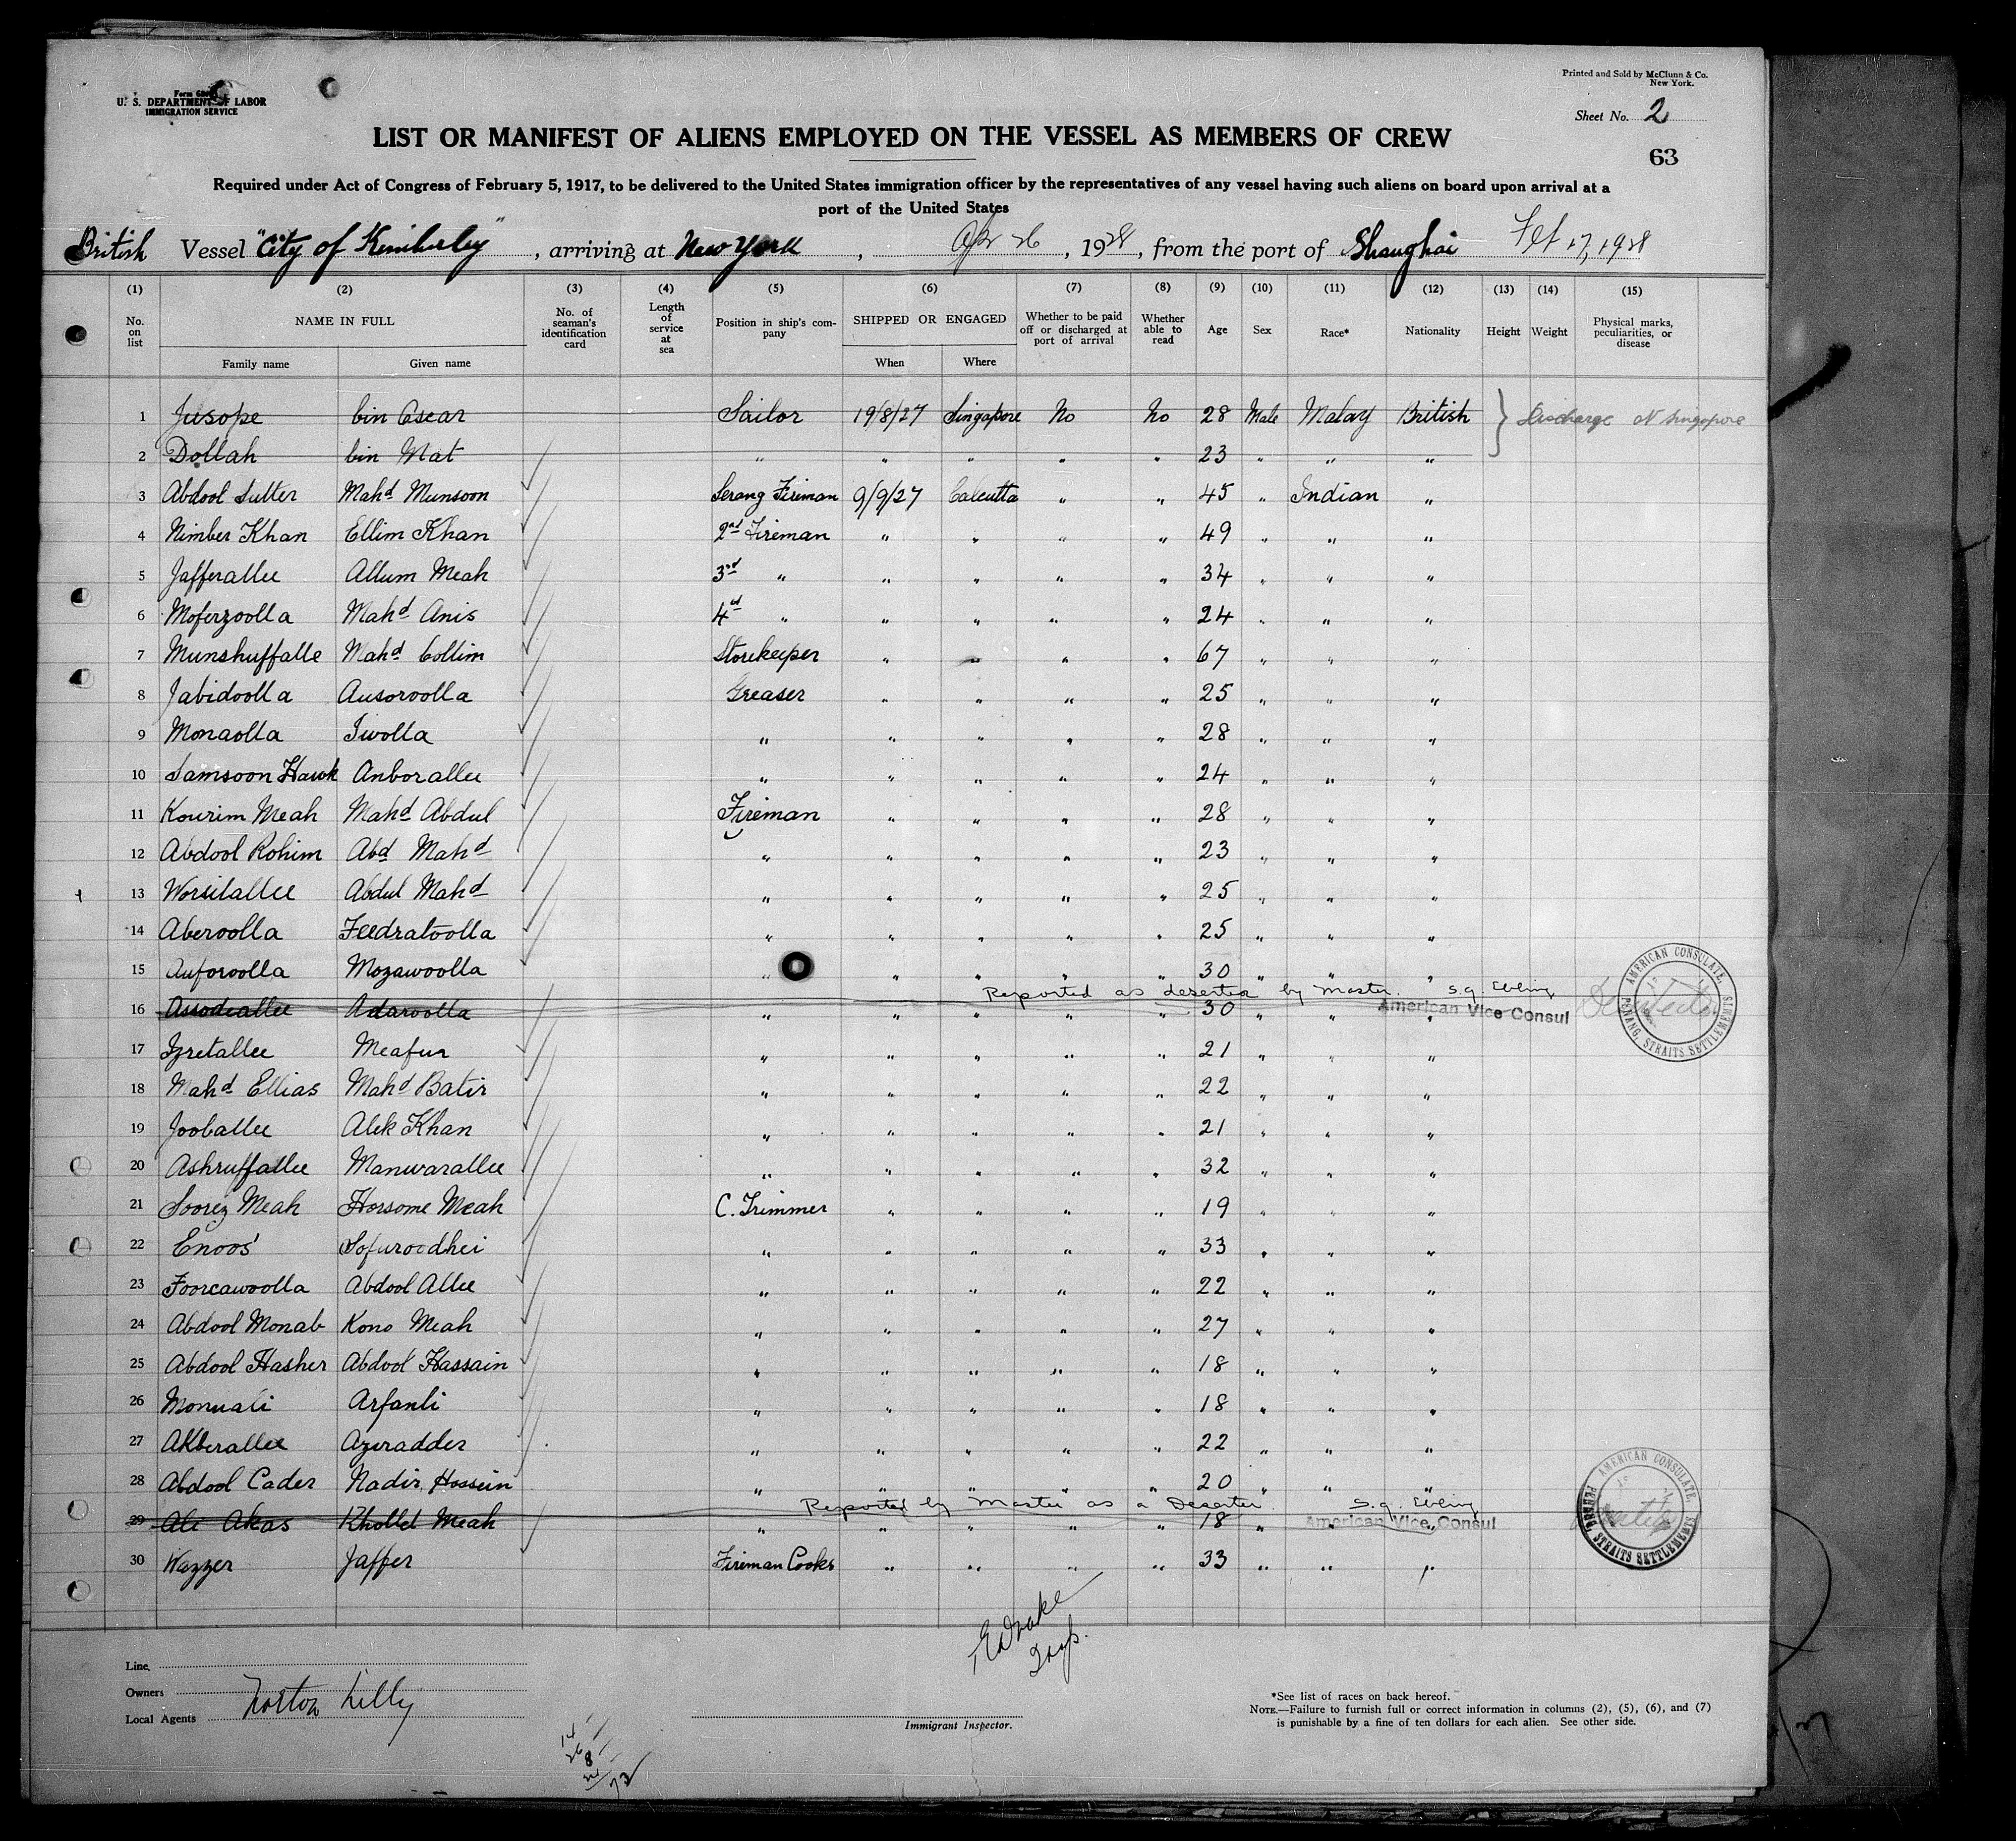 Printed and Sold by McClunn & Co.
New York.
U. S. DEPARTMENT OF LABOR
IMMIGRATION SERVICE
Sheet No. 2
LIST OR MANIFEST OF ALIENS EMPLOYED ON THE VESSEL AS MEMBERS OF CREW
63
Required under Act of Congress of February 5, 1917, to be delivered to the United States immigration officer by the representatives of any vessel having such aliens on board upon arrival at a
port of the United States
British Vessel "City of Kimberley", arriving at New York, Apr 26, 1928, from the port of Shanghai Feb 17, 1928
(1) (2) (3) (4) (5) (6) (7) (8) (9) (10) (11) (12) (13) (14) (15)
No. on list NAME IN FULL Family name Given name No. of seaman's identification card Length of service at sea Position in ship's company SHIPPED OR ENGAGED When Where Whether to be paid off or discharged at port of arrival Whether able to read Age Sex Race* Nationality Height Weight Physical marks, peculiarities, or disease
1 Jusope bin Osear Sailor 19/8/27 Singapore No No 28 Male Malay British } Discharge at Singapore
2 Dollah bin Mat " " " " " 23 " " "
3 Abdool Sutter Mahd Munsoon Serang Fireman 9/9/27 Calcutta " " 45 " Indian "
4 Nimber Khan Ellim Khan 2nd Fireman " " " " 49 " " "
5 Jafferallee Allum Meah 3rd " " " " " 34 " " "
6 Moferzoolla Mahd Anis 4th " " " " " 24 " " "
7 Munshuffalle Mahd Collim Storekeeper " " " " 67 " " "
8 Jabidoolla Ausoroolla Greaser " " " " 25 " " "
9 Monaolla Iwolla " " " " " 28 " " "
10 Samsoon Hawk Anborallee " " " " " 24 " " "
11 Kourim Meah Mahd Abdul Fireman " " " " 28 " " "
12 Abdool Rohim Abd Mahd " " " " " 23 " " "
13 Worsitallee Abdul Mahd " " " " " 25 " " "
14 Aberoolla Feedratoolla " " " " " 25 " " "
15 Auforoolla Mozawoolla " " " " " 30 " " "
Reported as deserter by Master. S.G. Ebling
16 Assodeallee Adaroolla " " " " " 30 " " " American Vice Consul
AMERICAN CONSULATE, PENANG, STRAITS SETTLEMENTS
17 Izretallee Meafur " " " " " 21 " " "
18 Mahd Ellias Mahd Batir " " " " " 22 " " "
19 Jooballee Alek Khan " " " " " 21 " " "
20 Ashruffallee Manwarallee " " " " " 32 " " "
21 Soorez Meah Horsome Meah C. Trimmer " " " " 19 " " "
22 Enoos Sofuroodhei " " " " " 33 " " "
23 Foorcawoolla Abdool Allee " " " " " 22 " " "
24 Abdool Monab Kono Meah " " " " " 27 " " "
25 Abdool Hasher Abdool Hassain " " " " " 18 " " "
26 Monuali Arfanli " " " " " 18 " " "
27 Akberallee Azeradder " " " " " 22 " " "
28 Abdool Cader Nadir Hossein " " " " " 20 " " "
Reported by Master as a Deserter. S.G. Ebling
29 Ali Akas Khollel Meah " " " " " 18 " " " American Vice Consul
AMERICAN CONSULATE, PENANG, STRAITS SETTLEMENTS
30 Wazzer Jaffer Fireman Cooks " " " " 33 " " "
Line
Owners
Local Agents Norton Lilly
Immigrant Inspector.
*See list of races on back hereof.
NOTE.—Failure to furnish full or correct information in columns (2), (5), (6), and (7)
is punishable by a fine of ten dollars for each alien. See other side.